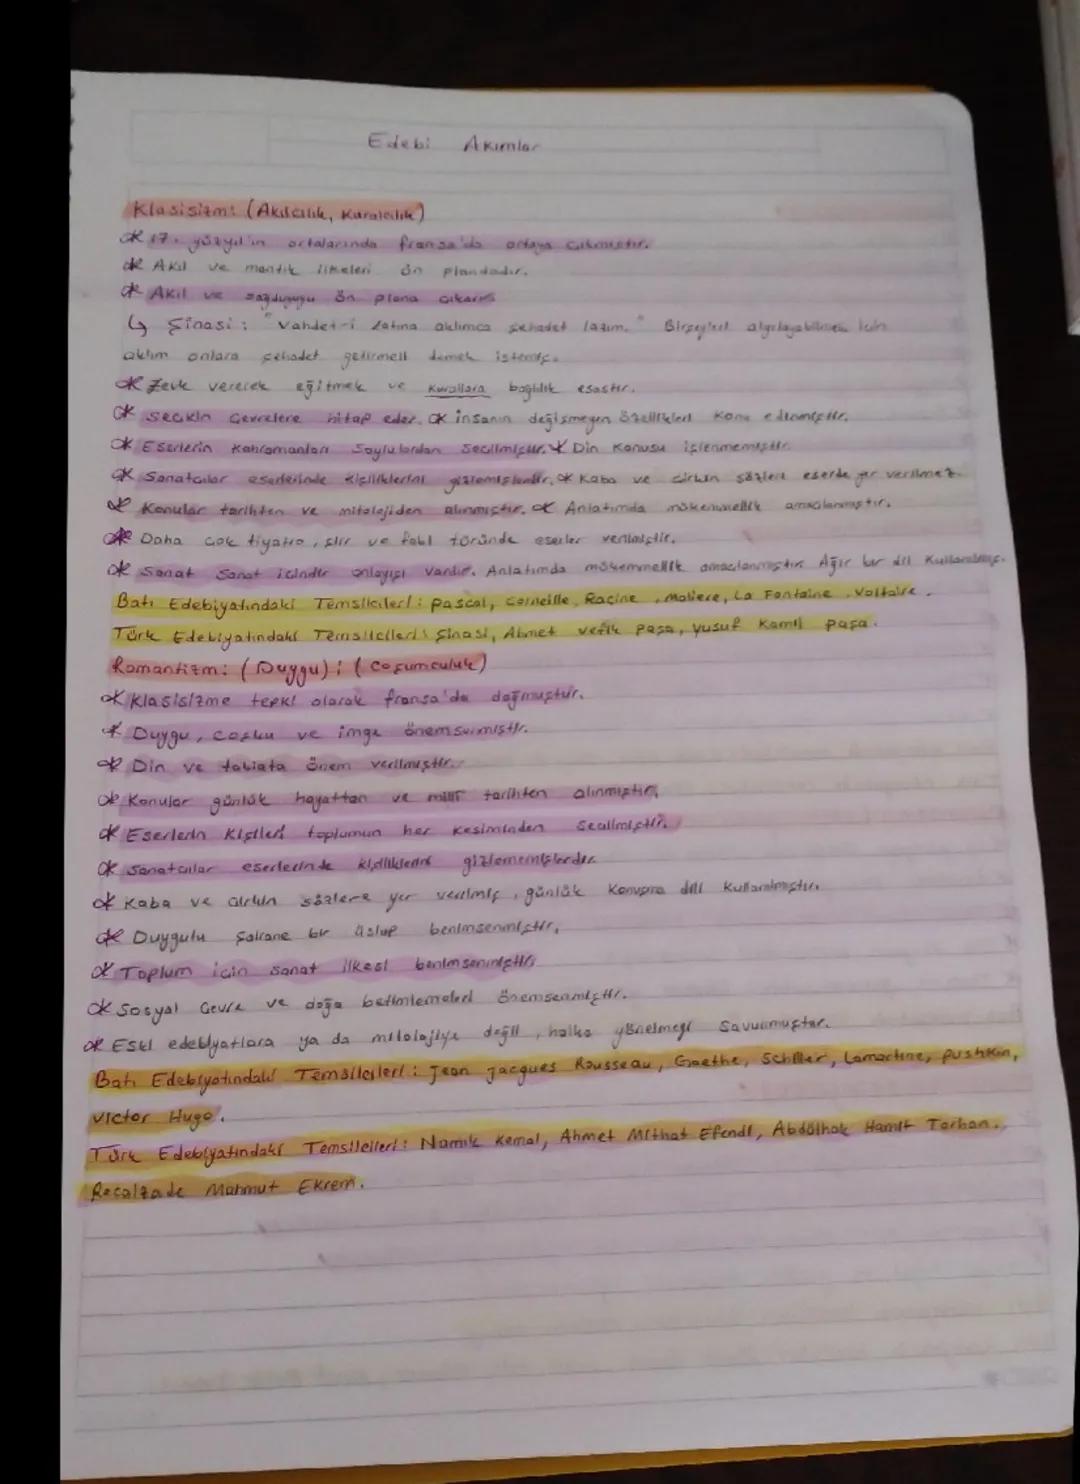 Edebi Akımlar
Klasisizm: (Akılcılık, Kuralcılık)
* 17. yüzyıl'ın ortalarında fransa'da ortaya çıkmıştır.
* Akıl ve mantık ilkeleri ön plandadır.
* Akıl ve sağduyuyu ön plana çıkarır
↳ Şinasi: "Vahdet-i zatına aklımca şehadet lazım." Birşeyleri algılayabilmek için
aklım onlara şehadet getirmeli demek istemiş.
* Zevk vererek eğitmek ve kurallara bağlılık esastır.
* Seckin Çevrelere hitap eder. * insanın değişmeyen özellikleri konu edinmiştir.
* Eserlerin Kahramanları Soylulardan Secilmiştir. * Din Konusu işlenmemiştir.
* Sanatcılar eserlerinde kişiliklerini gizlemişlerdir. * Kaba ve cirkin sözleri eserde yer verilmez.
* Konular tarihten ve mitolojiden alınmıştır. * Anlatımda mükemmellik amaclanmıştır.
* Daha çok tiyatro, şiir ve fabl türünde eserler verilmiştir.
* Sanat Sanat icindir anlayışı vardır. Anlatımda mükemmellik amaclanmıştır. Ağır bir dil Kullanılmış.
Batı Edebiyatındaki Temsilcileri: pascal, corneille, Racine, Moliere, La Fontaine, Voltaire.
Türk Edebiyatındaki Temsilcileri: Şinasi, Ahmet vefik paşa, yusuf Kamil paşa.
Romantizm: (Duygu): (coşumculuk)
* Klasisizme tepki olarak fransa'da doğmuştur.
* Duygu, coşku ve imge önemsenmiştir.
* Din ve tabiata önem verilmiştir.
* Konular günlük hayattan ve milli tarihten alınmıştır.
* Eserlerin Kişileri toplumun her kesiminden seçilmiştir.
* Sanatcılar eserlerinde kişiliklerini gizlememişlerdir.
* Kaba ve cirkin sözlere yer verilmiş, günlük Konuşma dili Kullanılmıştır.
* Duygulu şairane bir üslup benimsenmiştir.
* Toplum icin sanat ilkesi benimsenmiştir.
* Sosyal Çevre ve doğa betimlemeleri önemsenmiştir.
* Eski edebiyatlara ya da mitolojiye değil, halka yönelmeyi savunmuştur.
Batı Edebiyatındaki Temsilcileri: Jean Jacques Rousseau, Goethe, Schiller, Lamartine, pushkin,
victor Hugo.
Türk Edebiyatındaki Temsilcileri: Namık Kemal, Ahmet Mithat Efendi, Abdülhak Hamit Tarhan.,
Recaizade Mahmut Ekrem.